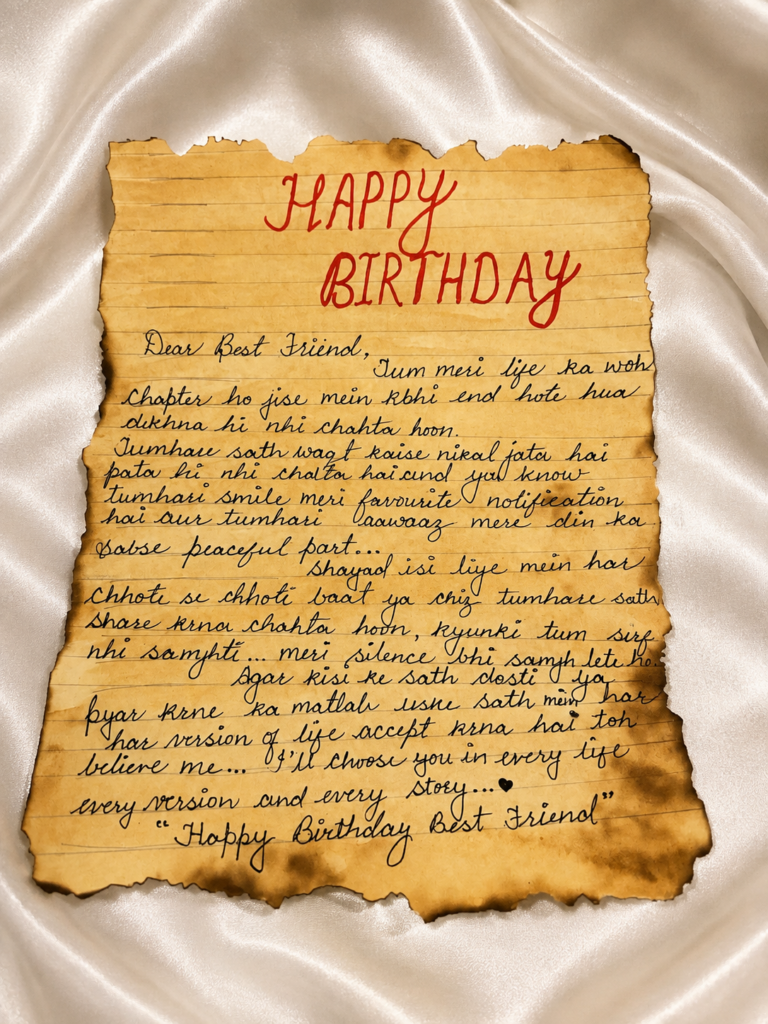 HAPPY
BIRTHDAY
Dear Best Friend,
Tum meri life ka woh
chapter ho jise mein kbhi end hote hua
dekhna hi nhi chahta hoon.
Tumhare sath waqt kaise nikal jata hai
pata hi nhi chalta hai and you know
tumhari smile meri favourite notification
hai aur tumhari aawaaz mere din ka
sabse peaceful part...
shayad isi liye mein har
chhoti se chhoti baat ya chiz tumhare sath
share krna chahta hoon, kyunki tum sirf
nhi samjhti... meri silence bhi samjh lete ho.
Agar kisi ke sath dosti ya
pyar krne ka matlab uske sath mein har
har version of life accept krna hai toh
believe me... I'll choose you in every life
every version and every story...♥
"Happy Birthday Best Friend"